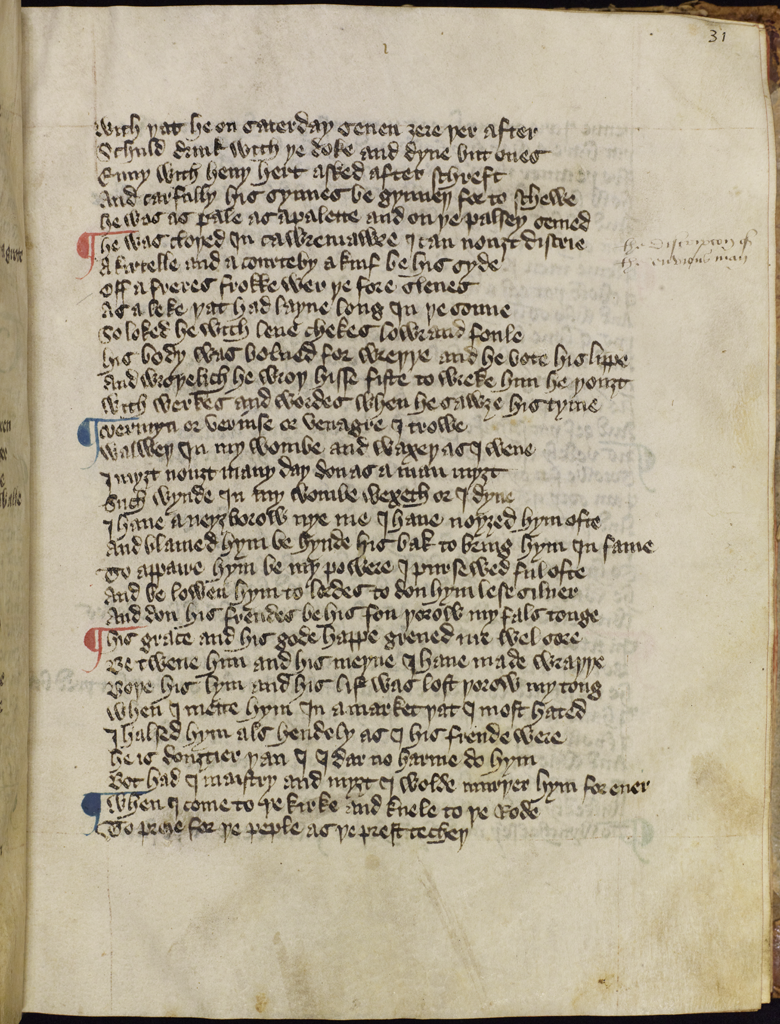 31
With þat he on saterday seuen ȝere þer after
Schuld drink with þe doke and dyne but ones
Enuy with heuy hert asked after schreft
And carfully his synnes be gynneþ for to schewe
he was as pale as a palette and on þe palsey semed
he was cloþed In cawremawre I can nouȝt discrie
A kirtelle and a courteby a knif be his syde
Off a freres frokke wer þe fore sleues
As a leke þat had layne long In þe sonne
So loked he with lene chekes lowrand foule
his body was bolned for wreþþe and he bote his lippe
And wroþelich he wroþ hisse fiste to wreke him he þouȝt
With werkes and wordes when he sawȝe his tyme
Vermyn or veriuse or venagre I trowe
Walweþ In my wombe and waxeþ as I wene
I myȝt nouȝt many day don as a man myȝt
Such wynde In my wombe wexeth or I dyne
I haue a neyȝborow nye me I haue noyȝed hym ofte
And blamed hym be hynde his bak to bring hym In fame
To appaire hym be my powere I pursewed ful ofte
And be lowen hym to lordes to don hym lese siluer
And don his frendes be his fon þorow my fals tonge
his grace and his gode happe greued me wel sore
Be twene him and his meyne I haue made wraþþe
Boþe his lym and his lif was lost þorow my tong
When I mette hym In a market þat I most hated
I halsed hym als hendely as I his frende were
he is douȝtier þan I I dar no harme do hym
Bot had I maistry and myȝt I wolde murþer hym for euer
When I come to þe kirke and knele to þe Rode
To preie for þe peple as þe prest techeþ
the discripcion of
the envious man